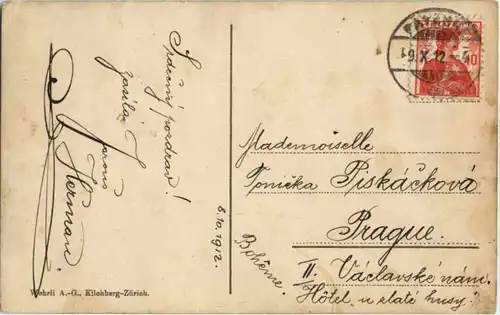 Srdečný pozdrav!
zasílá J.
Herman
8.10.1912.
Wehrli A.-G., Kilchberg-Zürich.
9.X.12
10
Mademoiselle
Tonička Piskáčková
Prague.
Bohême.
II. Václavské nám.
Hôtel „u zlaté husy."